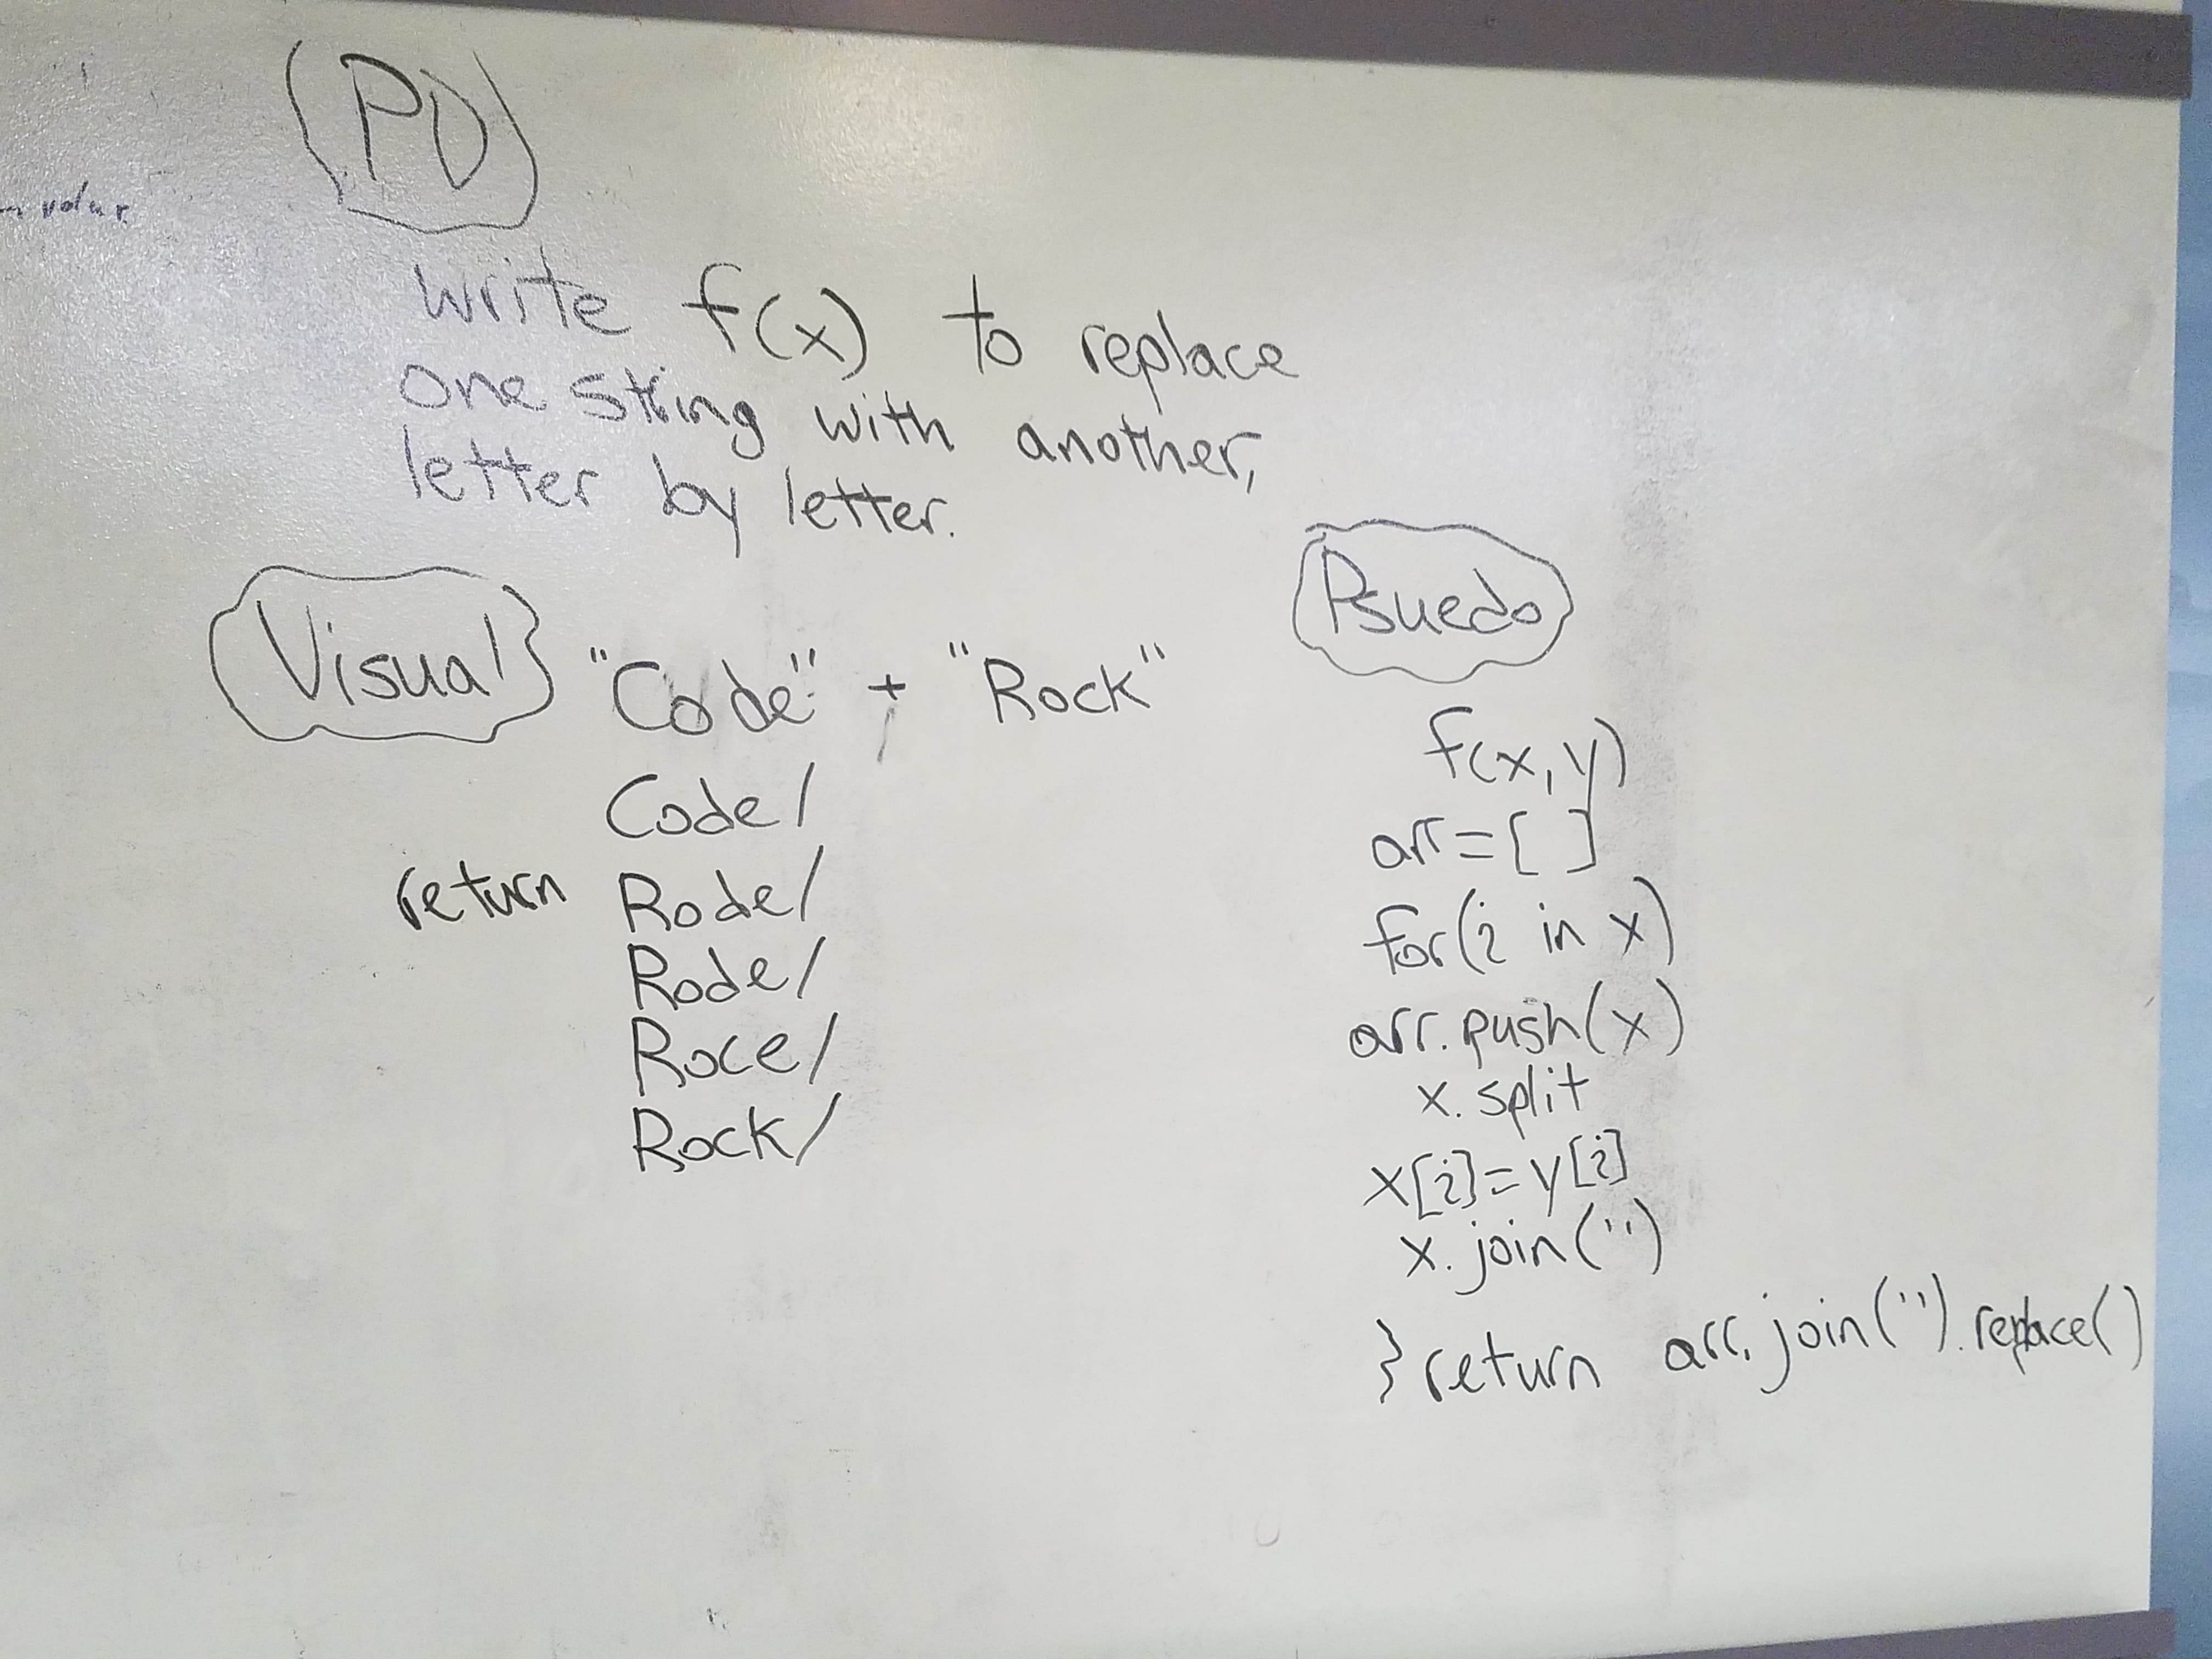 PD
write f(x) to replace
one string with another,
letter by letter.
Visual
"Code" + "Rock"
Code/
return Rode/
Rode/
Roce/
Rock/
Psuedo
f(x,y)
arr=[ ]
for(i in x)
arr.push(x)
x.split
x[i]=y[i]
x.join('')
}return arr.join('').replace()